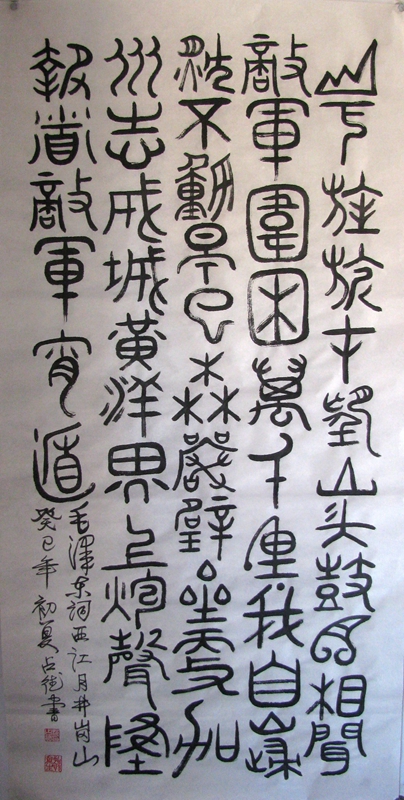 山下旌旗在望山頭鼓角相聞
敵軍圍困萬千重我自巋
然不動早已森嚴壁壘更加
眾志成城黃洋界上炮聲隆
報道敵軍宵遁
毛澤东詞西江月井崗山
癸巳年初夏占德書